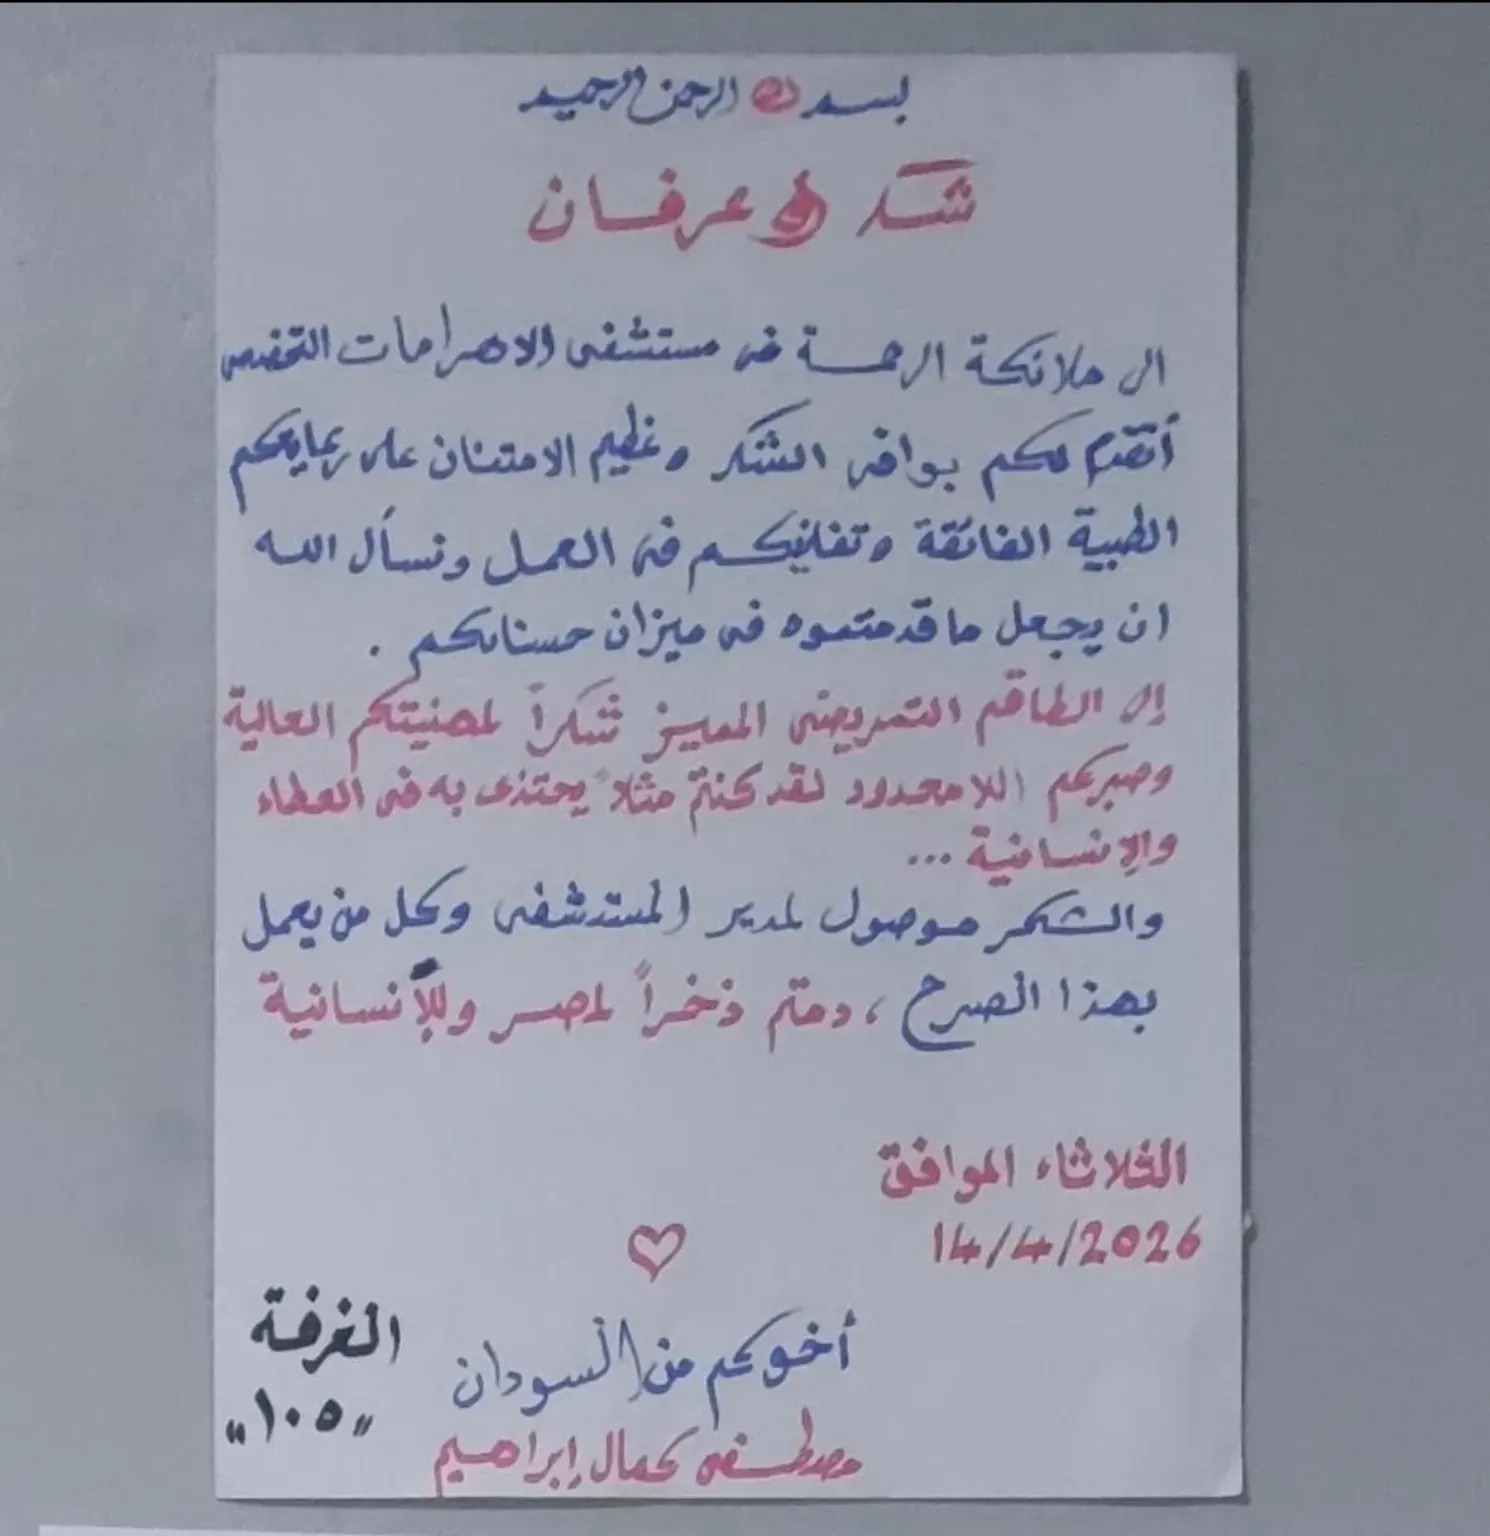 بسم الله الرحمن الرحيم
شكر و عرفان
الى ملائكة الرحمة فى مستشفى الاهرامات التخصصى
أتقدم لكم بوافر الشكر وعظيم الامتنان على رعايتكم
الطبية الفائقة وتفانيكم فى العمل ونسأل الله
ان يجعل ما قدمتموه فى ميزان حسناتكم .
إلى الطاقم التمريضى المميز شكراً لمهنيتكم العالية
وصبركم اللا محدود لقد كنتم مثلاً يحتذى به فى العطاء
والإنسانية ...
والشكر موصول لمدير المستشفى وكل من يعمل
بهذا الصرح ، دمتم ذخراً لمصر وللأنسانية
الثلاثاء الموافق
14/4/2026
أخوكم من السودان
مصطفى كمال إبراهيم
الغرفة
"١٠٥"